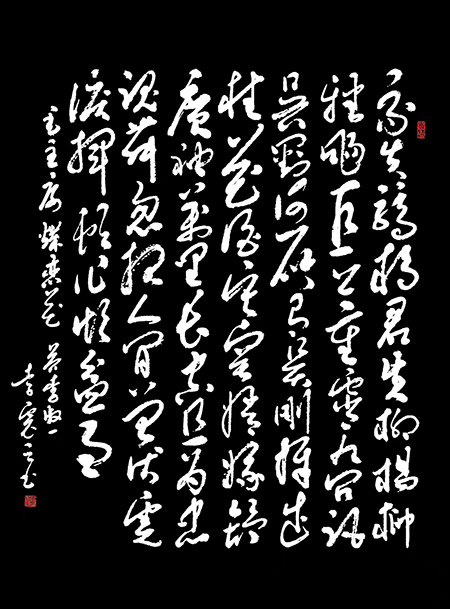 我失骄楊君失柳楊柳
軽飏直上重霄九问訊
吴剛何所有吴剛捧出
桂花酒寂寞嫦娥舒
廣袖萬里长空且为忠
魂舞忽报人间曾伏虎
淚揮顿作倾盆雨
毛主席蝶恋花 答李淑一